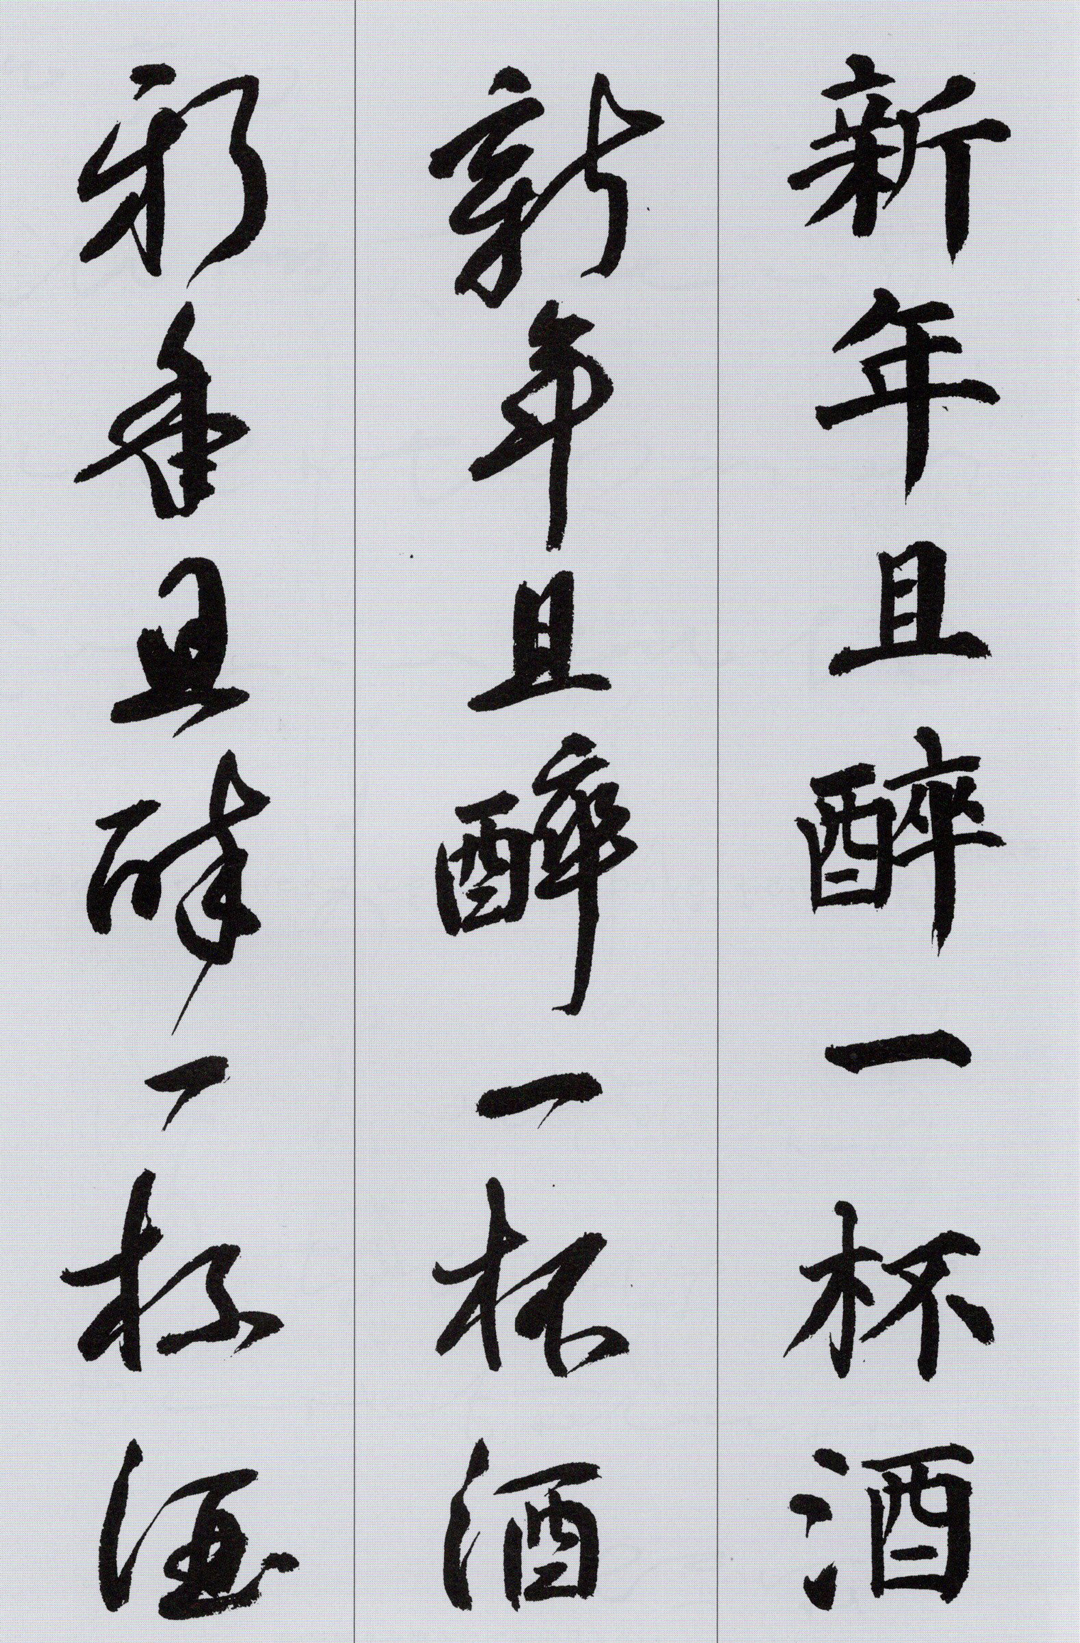 新年且醉一杯酒
新年且醉一杯酒
新年且醉一杯酒